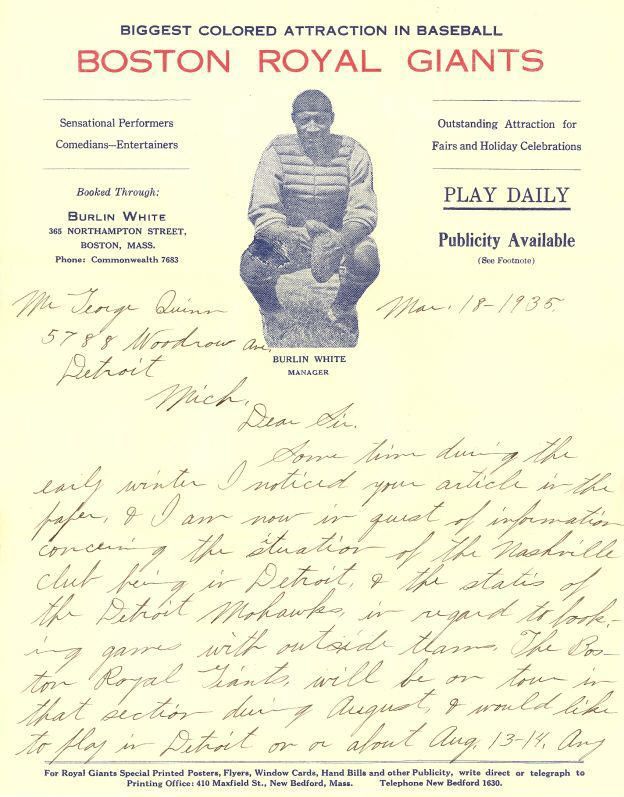 BIGGEST COLORED ATTRACTION IN BASEBALL
BOSTON ROYAL GIANTS
Sensational Performers
Comedians—Entertainers
Booked Through:
BURLIN WHITE
365 NORTHAMPTON STREET,
BOSTON, MASS.
Phone: Commonwealth 7683
Outstanding Attraction for
Fairs and Holiday Celebrations
PLAY DAILY
Publicity Available
(See Footnote)
BURLIN WHITE
MANAGER
Mr George Quinn
5788 Woodrow Ave,
Detroit
Mich.
Mar. 18-1935.
Dear Sir.
Some time during the
early winter I noticed your article in the
paper, & I am now in quest of information
concering the situation of the Nashville
club being in Detroit, & the status of
the Detroit Mohawks, in regard to book-
ing games with outside teams. The Bos-
ton Royal Giants, will be on tour in
that section during August, & would like
to play in Detroit on or about Aug. 13-14. Any
For Royal Giants Special Printed Posters, Flyers, Window Cards, Hand Bills and other Publicity, write direct or telegraph to
Printing Office: 410 Maxfield St., New Bedford, Mass. Telephone New Bedford 1630.